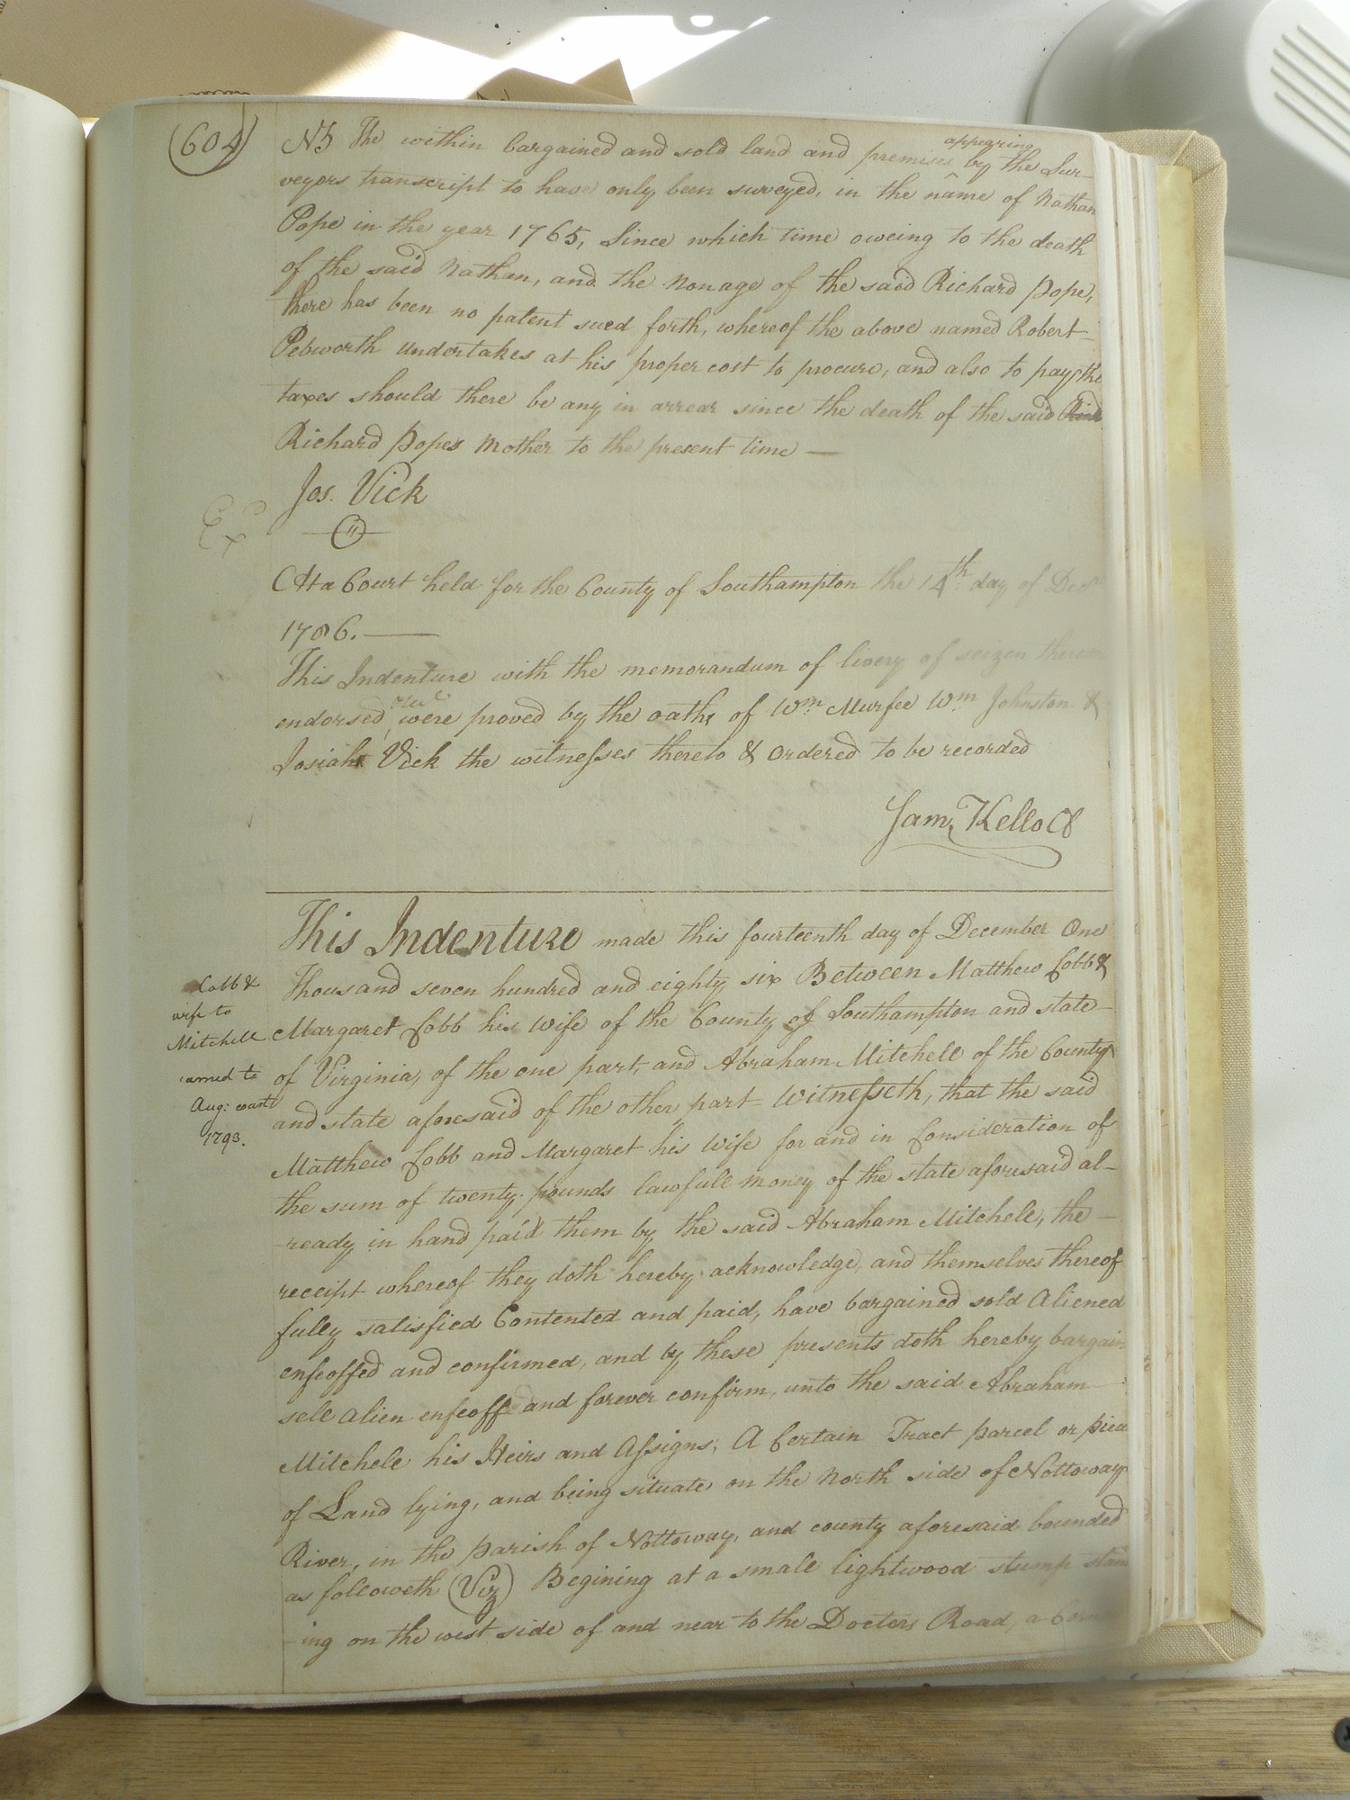 (604)
NB The within bargained and sold land and premises appearing by the Sur-
veyors transcript to have only been surveyed, in the name of Nathan
Pope in the year 1765, Since which time oweing to the death
of the said Nathan, and the Nonage of the said Richard Pope,
there has been no patent sued forth, whereof the above named Robert
Pebworth undertakes at his proper cost to procure, and also to pay the
taxes should there be any in arrear since the death of the said
Richard Popes Mother to the present time —
Jos. Vick
Ex
At a Court held for the County of Southampton the 14th day of Decr
1786. —
This Indenture with the memorandum of livery of seizen thereon
endorsed, were proved by the oaths of Wm Murfee Wm Johnston &
Josiah Vick the witnesses thereto & ordered to be recorded
Sam. Kello Cl
This Indenture made this fourteenth day of December One
Cobb &
wife to
Mitchell
Thousand seven hundred and eighty six Between Matthew Cobb &
Margaret Cobb his Wife of the County of Southampton and state
of Virginia, of the one part, and Abraham Mitchell of the County
Aug: court
1793.
and state aforesaid of the other part Witnesseth, that the said
Matthew Cobb and Margaret his Wife for and in Consideration of
the sum of twenty pounds lawfull money of the state aforesaid al-
-ready in hand paid them by the said Abraham Mitchele, the —
receipt whereof they doth hereby acknowledge, and themselves thereof
fully satisfied Contented and paid, have bargained sold Aliened
enfeoffed and confirmed, and by these presents doth hereby bargain
sele alien enfeoff and forever confirm, unto the said Abraham
Mitchele his Heirs and Assigns; A Certain Tract parcel or piece
of Land lying, and being situate on the North side of Nottoway
River, in the parish of Nottoway, and county aforesaid bounded
as followeth (Viz) Begining at a smale lightwood stump stand
-ing on the west side of and near to the Doctors Road, a